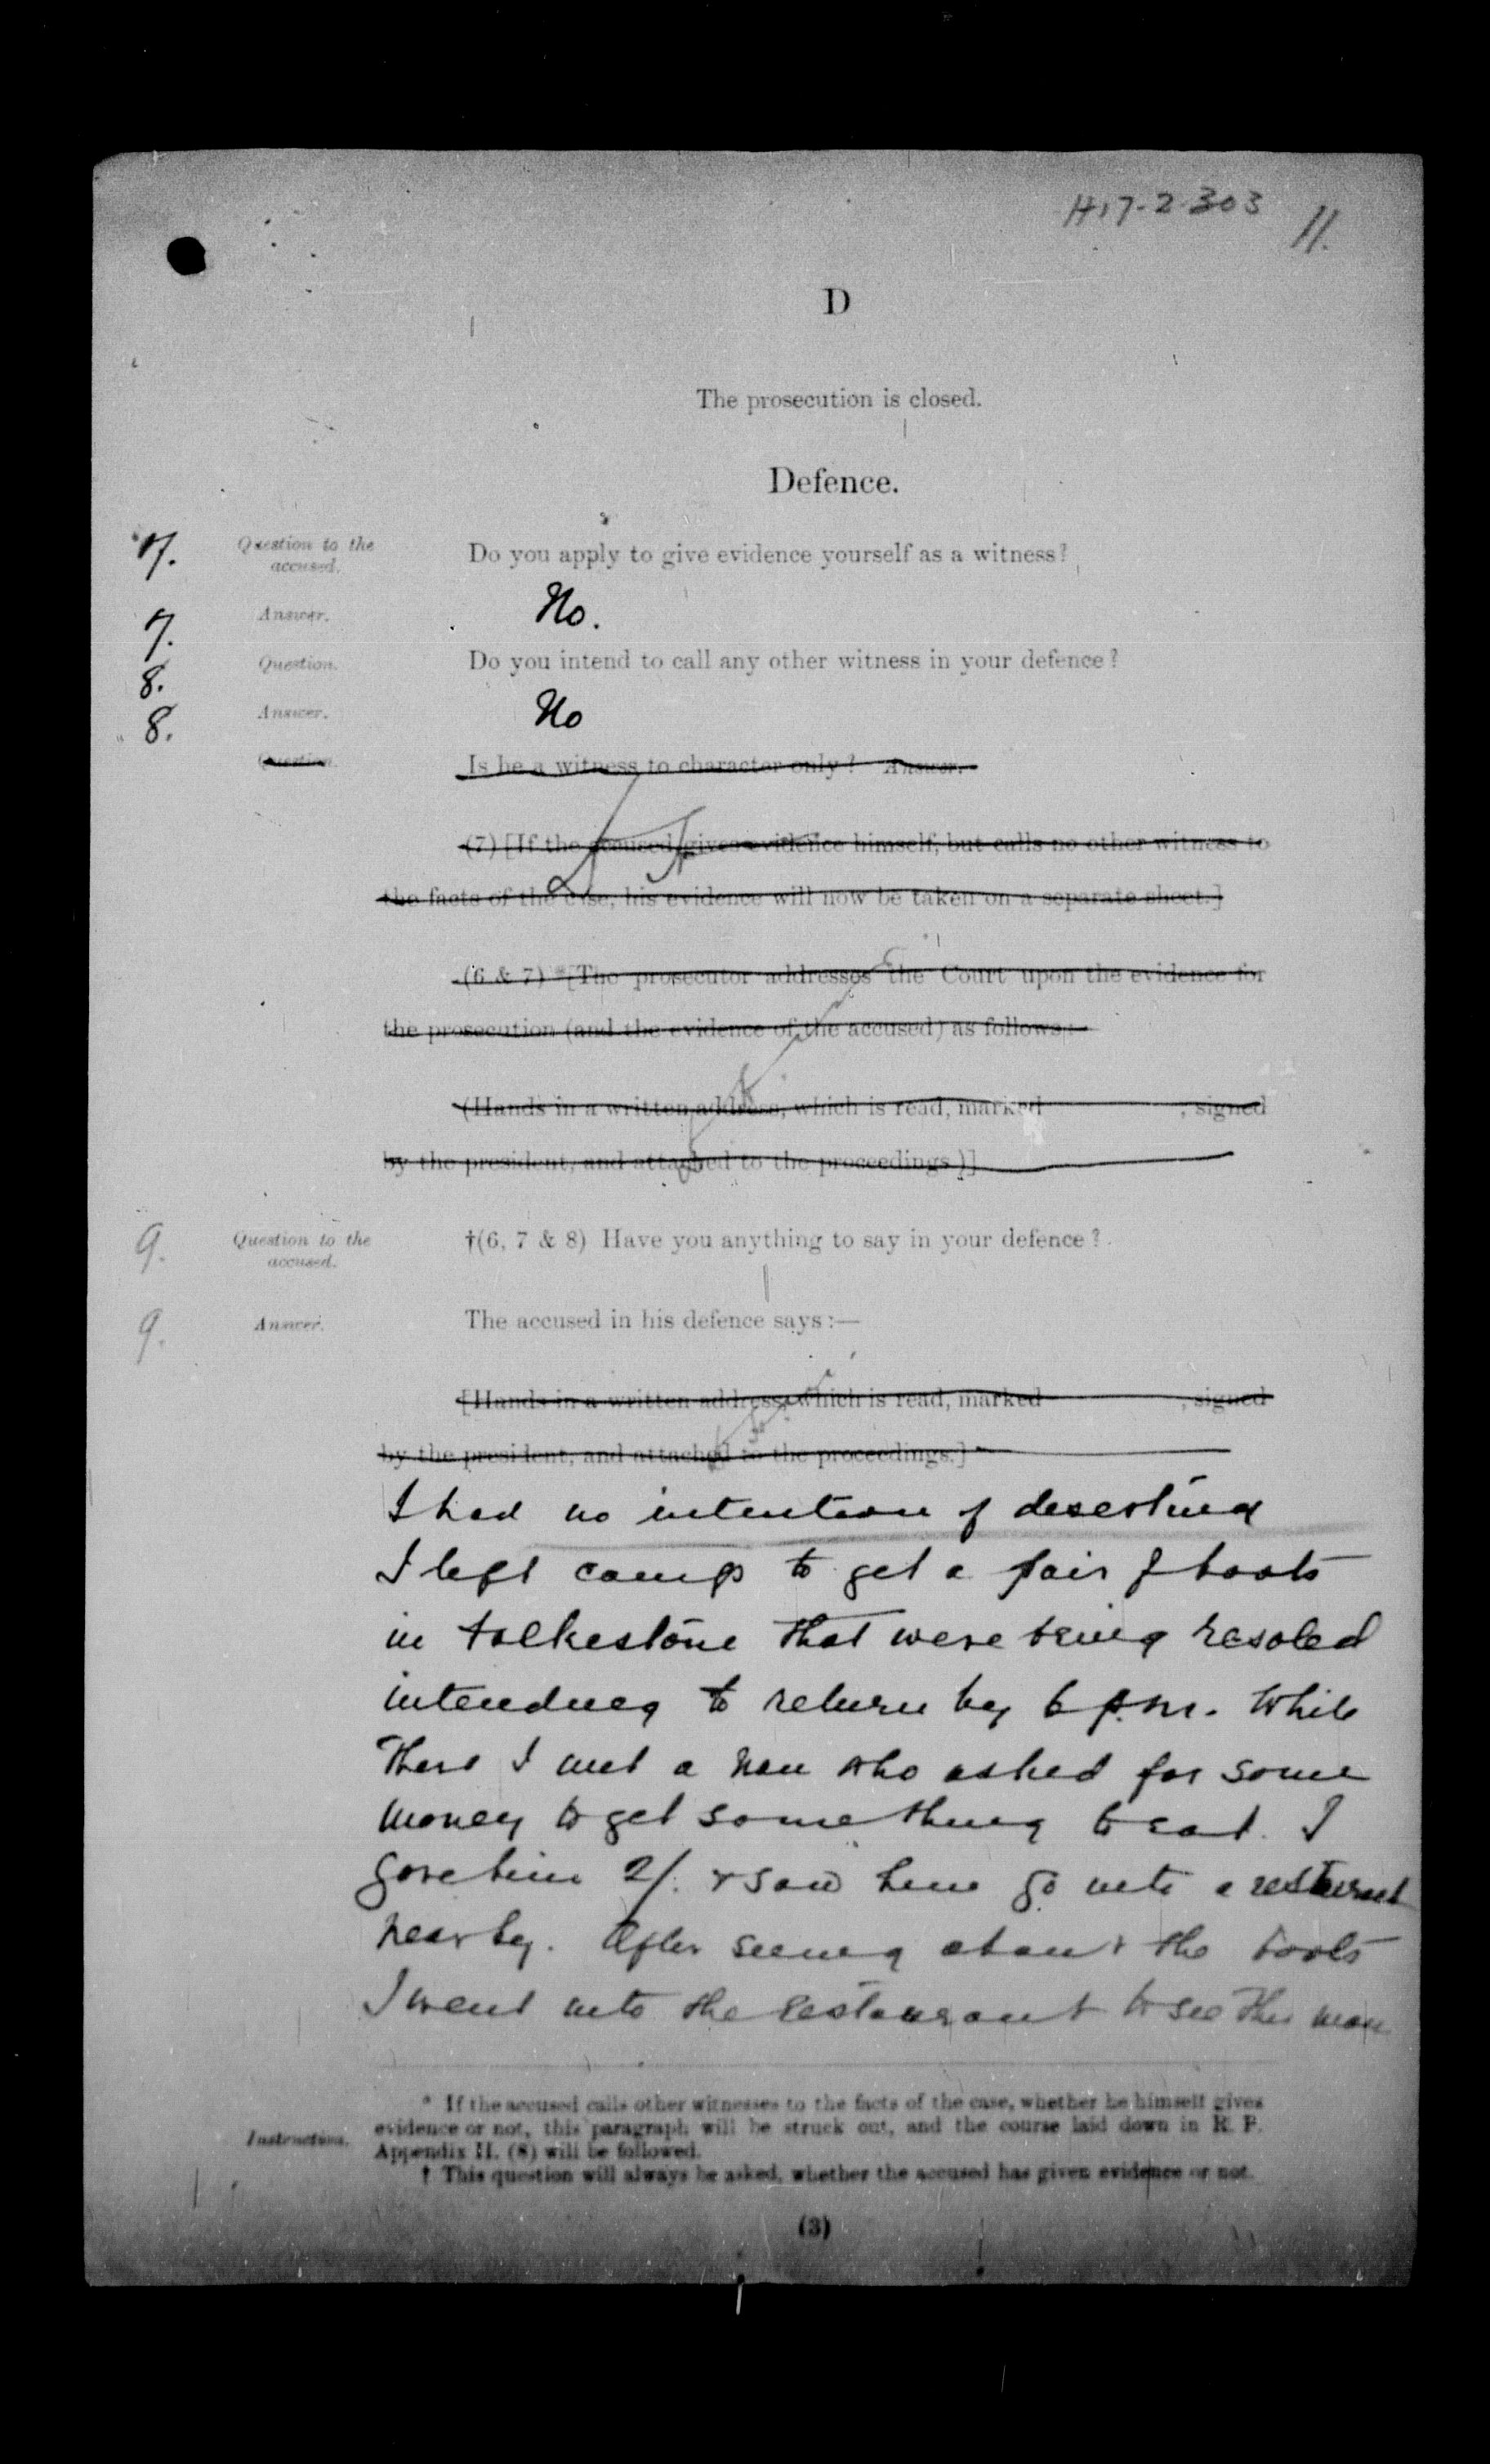 H17-2-303 11.
D
The prosecution is closed.
Defence.
7. Question to the accused. Do you apply to give evidence yourself as a witness?
7. Answer. No.
8. Question. Do you intend to call any other witness in your defence?
8. Answer. No
Question. Is he a witness to character only? Answer.
(7) [If the accused gives evidence himself, but calls no other witness to
the facts of the case, his evidence will now be taken on a separate sheet.]
(6 & 7) *[The prosecutor addresses the Court upon the evidence for
the prosecution (and the evidence of the accused) as follows:—
(Hands in a written address, which is read, marked , signed
by the president, and attached to the proceedings.)]
9. Question to the accused. †(6, 7 & 8) Have you anything to say in your defence?
9. Answer. The accused in his defence says:—
[Hands in a written address, which is read, marked , signed
by the president, and attached to the proceedings.]
I had no intention of deserting
I left camp to get a pair of boots
in Folkestone that were being resoled
intending to return by 6 p.m. While
there I met a man who asked for some
money to get something to eat. I
gave him 2/. & saw him go into a restaurant
nearby. After seeing about the boots
I went into the restaurant to see this man
* If the accused calls other witnesses to the facts of the case, whether he himself gives
Instruction. evidence or not, this paragraph will be struck out, and the course laid down in R. P.
Appendix II. (8) will be followed.
† This question will always be asked, whether the accused has given evidence or not.
(3)